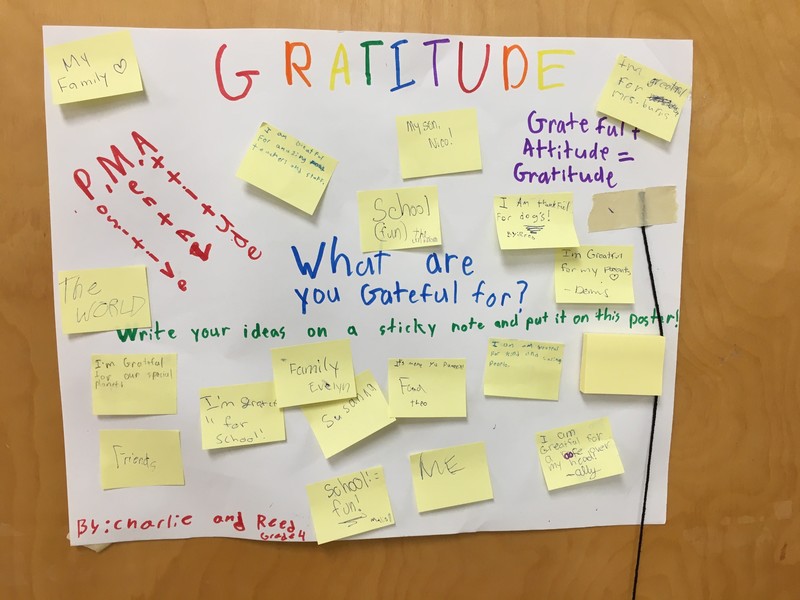 GRATITUDE
My
Family ♡
I'm greatful
For
Mrs. burns
I am Greatful
For amazing
teachers and staff.
My son,
Nico!
Grateful +
Attitude =
Gratitude
P.M.A
ositive
ental
ttitude
School
(fun)
I Am thankful
For dog's!
I'm Greatful
for my parents
- Denis
What are
you Gateful for?
The
WORLD
Write your ideas on a sticky note and put it on this poster!
I'm Grateful
for our special
planet!
I'm grateful
for
School!
Family
Evelyn
Susanna
Food
theo
I am
for kind and caring
people.
Friends
School! =
fun!
ME
I am
Greatful for
a over
my head!
-ally
By: Charlie and Reed
Grade 4